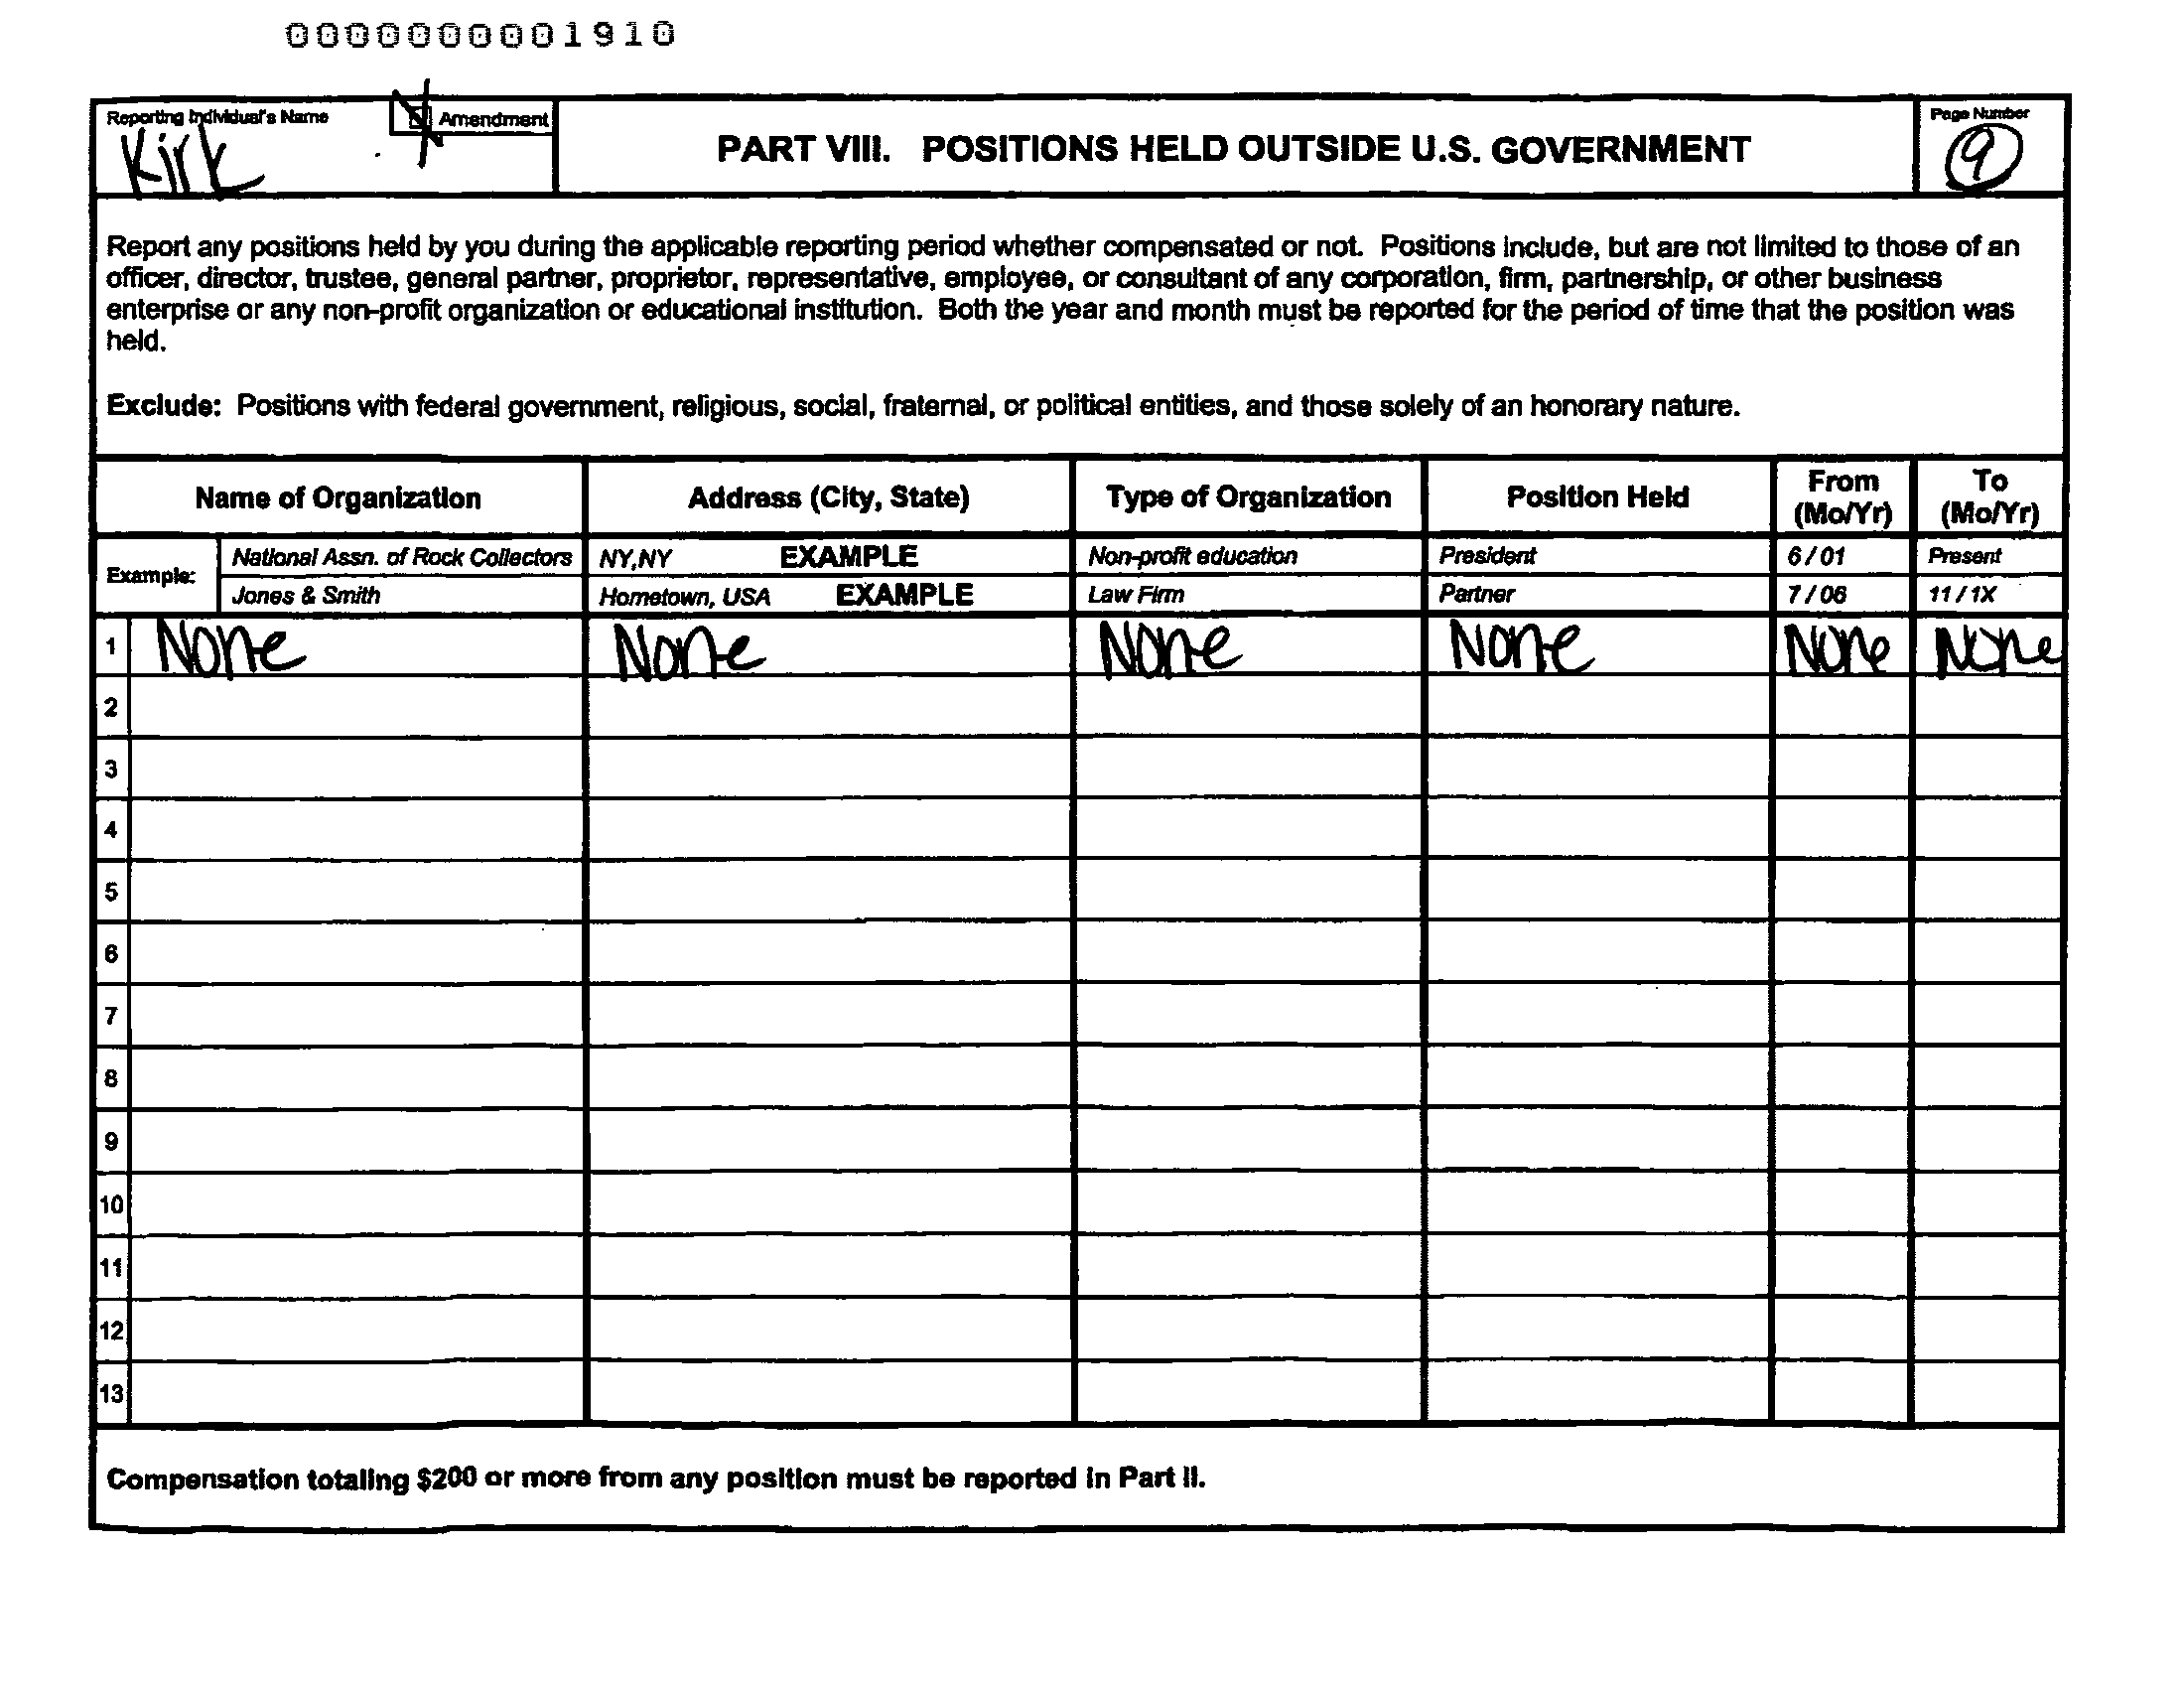 0000000001910
Reporting Individual's Name
Amendment
Kirk
PART VIII. POSITIONS HELD OUTSIDE U.S. GOVERNMENT
Page Number
9
Report any positions held by you during the applicable reporting period whether compensated or not. Positions include, but are not limited to those of an
officer, director, trustee, general partner, proprietor, representative, employee, or consultant of any corporation, firm, partnership, or other business
enterprise or any non-profit organization or educational institution. Both the year and month must be reported for the period of time that the position was
held.
Exclude: Positions with federal government, religious, social, fraternal, or political entities, and those solely of an honorary nature.
Name of Organization Address (City, State) Type of Organization Position Held From (Mo/Yr) To (Mo/Yr)
Example:
National Assn. of Rock Collectors NY,NY EXAMPLE Non-profit education President 6/01 Present
Jones & Smith Hometown, USA EXAMPLE Law Firm Partner 7/06 11/1X
1 None None None None None None
2
3
4
5
6
7
8
9
10
11
12
13
Compensation totaling $200 or more from any position must be reported in Part II.